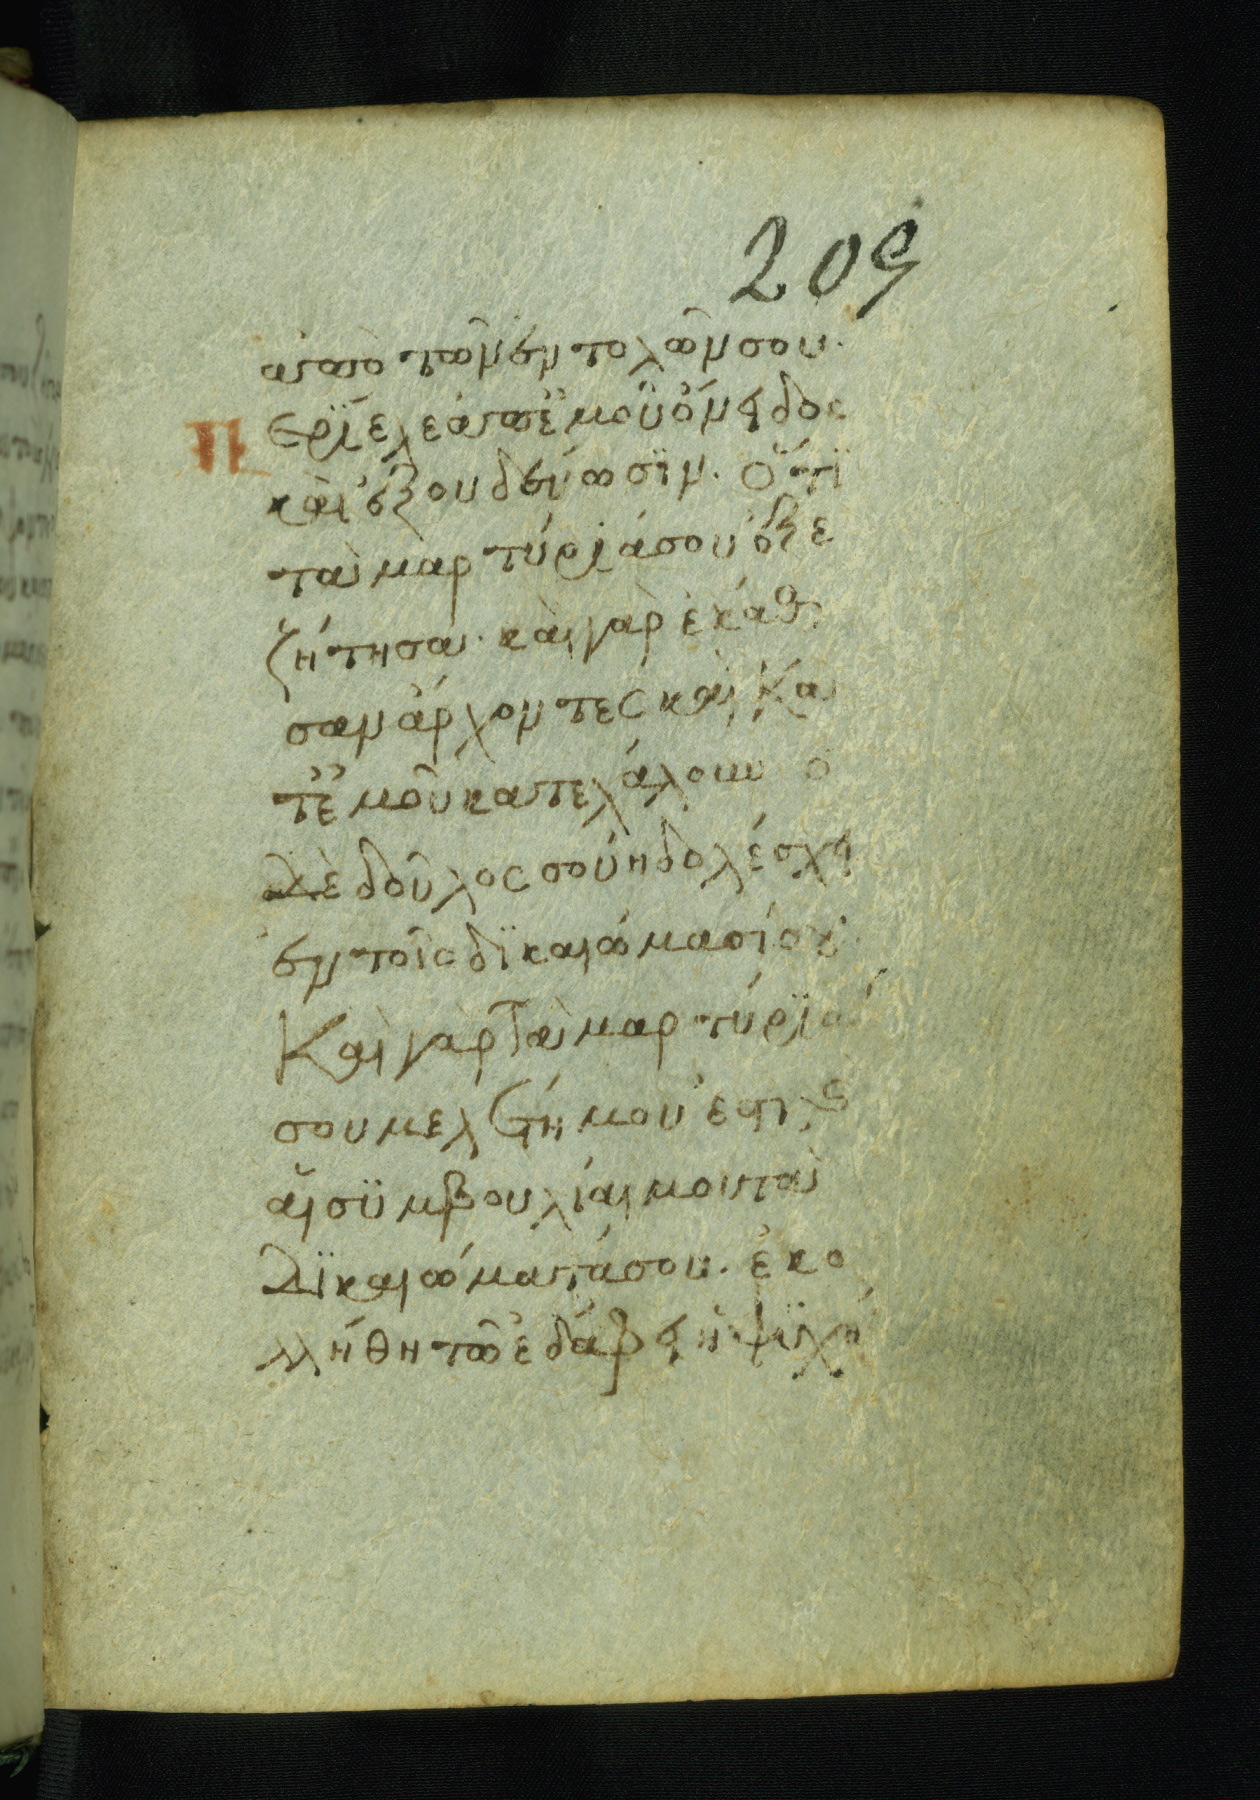 209
ἀπὸ τῶν ἐντολῶν σου.
Περίελε ἀπ' ἐμοῦ ὄνειδος
καὶ ἐξουδένωσϊν. ὅτϊ
τὰ μαρτύρϊά σου ἐξε
ζήτησα. καὶ γὰρ ἐκάθι
σαν ἄρχοντες καὶ κα
τ' ἐμοῦ κατελάλουν ὁ
δὲ δοῦλος σου ἠδολέσχει
ἐν τοῖς δϊκαιώμασί σου.
Καὶ γὰρ τὰ μαρτύρϊά
σου μελέτη μου ἐστι, καὶ
αἱ σϋμβουλίαι μου τὰ
δϊκαιώματά σου. ἐκο
λλήθη τῶ ἐδάφει ἡ ψϋχή